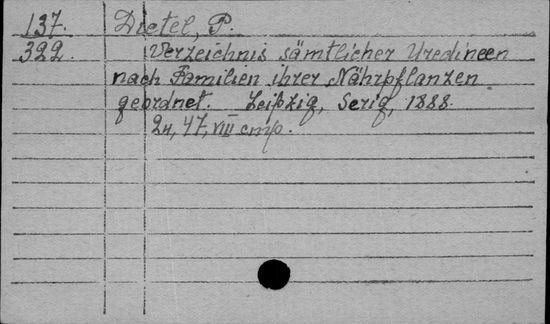 137. Dietel, P.
322. Verzeichnis sämtlicher Uredineen
nach Familien ihrer Nährpflanzen
geordnet. Leipzig, Serig, 1888.
2н, 47, VIII стр.